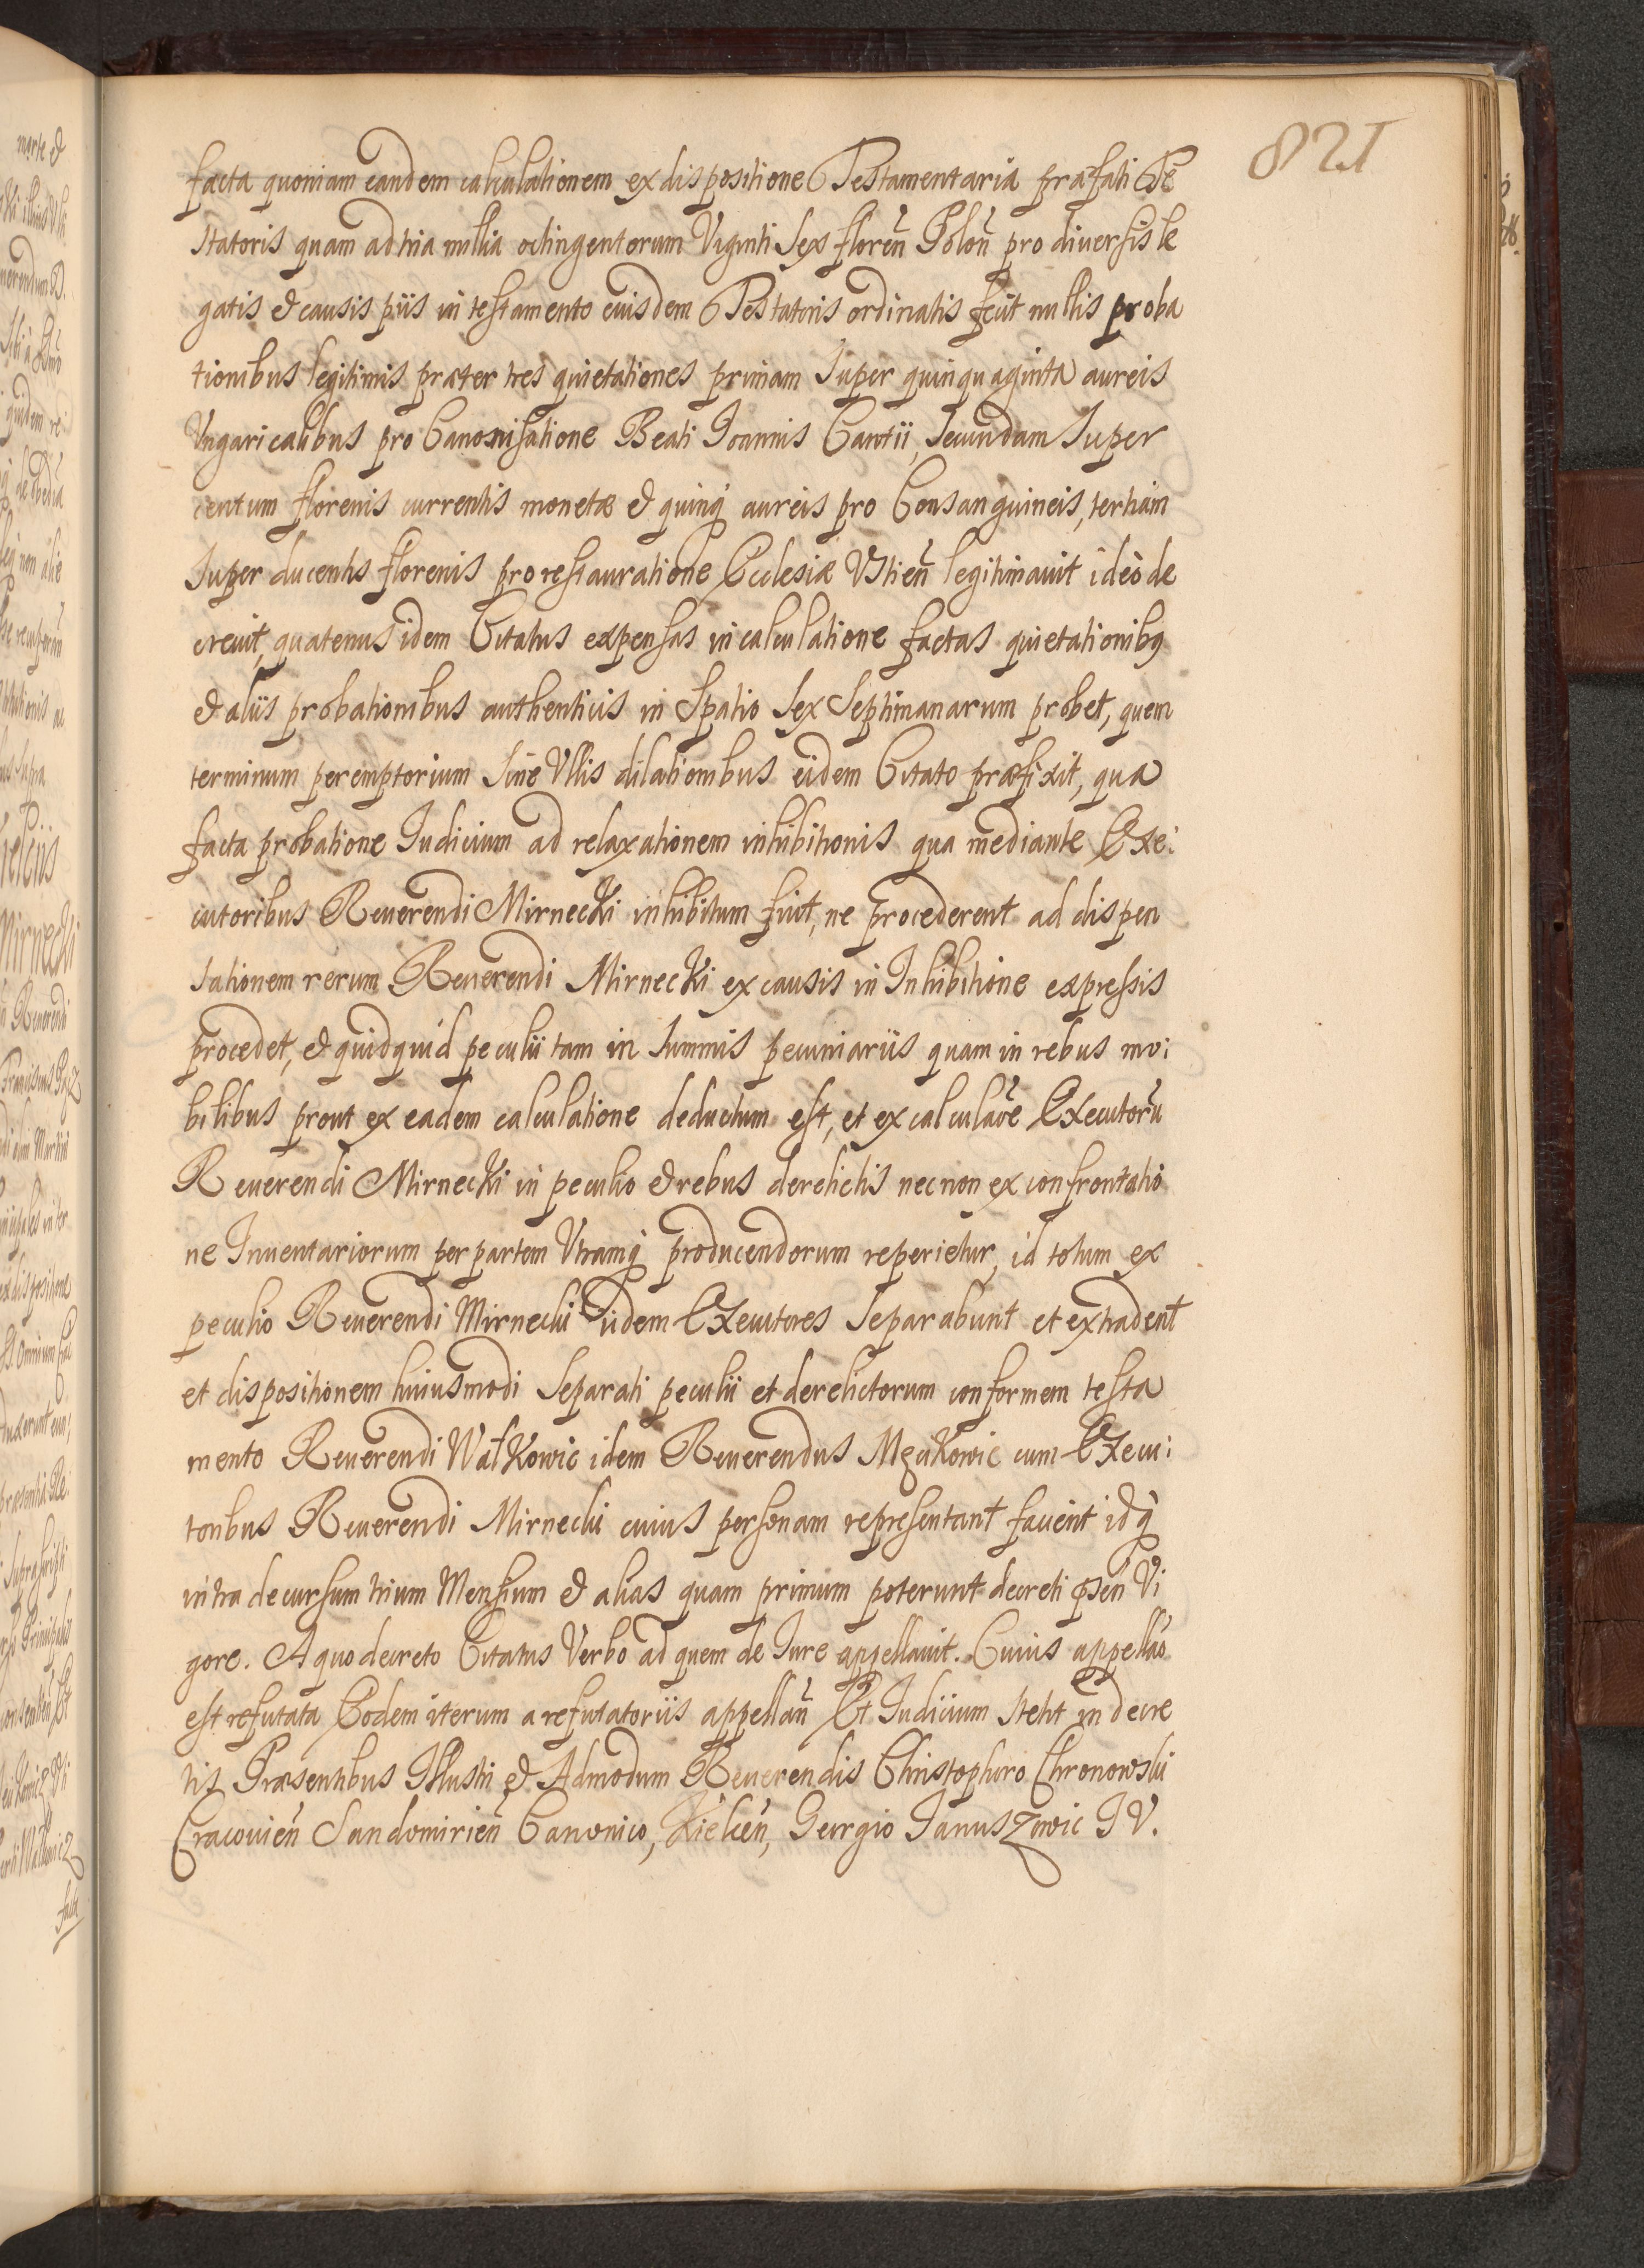 821
facta quoniam eandem calculationem ex dispositione Testamentaria præfati Te
statoris quam ad tria millia octingentorum Viginti Sex floreñ Poloñ pro diuersis le
gatis & causis piis in testamento eiusdem Testatoris ordinatis fecit nullis proba
tionibus legitimis præter tres quietationes primam Super quinquaginta aureis
Vngaricalibus pro Canonisatione Beati Joannis Cantii, Secundam Super
centum florenis currentis monetæ & quinq́ aureis pro Consanguineis, tertiam
Super ducentis florenis pro restauratione Ecclesiæ Vstieñ legitimauit ideò de
creuit, quatenus idem Citatus expensas in calculatione factas quietationibq
& aliis probationibus authenticis in Spatio Sex Septimanarum probet, quem
terminum peremptorium Sine Vllis dilationibus eidem Citato præfixit, qua
facta probatione Iudicium ad relaxationem inhibitionis qua mediante Exe:
cutoribus Reuerendi Mirnecki inhibitum fuit, ne procederent ad dispen
sationem rerum Reuerendi Mirnecki ex causis in Inhibitione expressis
procedet, & quidquid peculii tam in Summis pecuniariis quam in rebus mo:
bilibus prout ex eadem calculatione deductum est, et ex calculaõe Executorũ
Reuerendi Mirnecki in peculio & rebus derelictis necnon ex confrontatio
ne Inuentariorum per partem Vtramq́ producendorum reperietur, id totum ex
peculio Reuerendi Mirnecki iidem Executores Separabunt et extradent
et dispositionem huiusmodi Separati peculii et derelictorum conformem testa
mento Reuerendi Watkowic idem Reuerendus Mzukowic cum Execu:
toribus Reuerendi Mirnecki cuius personam representant facient idq́
intra decursum trium Mensium & alias quam primum poterunt decreti p̃señ Vi
gore. A quo decreto Citatus Verbo ad quem de Iure appellauit. Cuius appellaõ
est refutata Eodem iterum a refutatoriis appellañ Et Iudicium stetit in decre
tis Præsentibus Illustri & Admodum Reuerendis Christophoro Chronowski
Cracouieñ Sandomirieñ Canonico, Kielceñ, Georgio Januszowic J V.